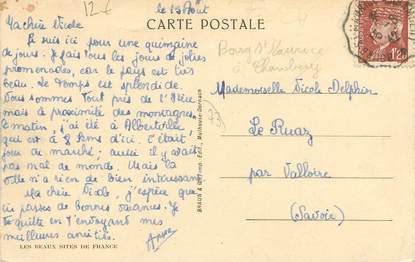 12 €
le 13 Août
CARTE POSTALE
Ma chère Nicole
Je suis ici pour une quinzaine
de jours. Je fais tous les jours de jolies
promenades, car le pays est très
beau. Le temps est splendide.
Nous sommes tout près de l'Isère
mais à proximité des montagnes.
Ce matin, j'ai été à Albertville
qui est à 8 kms d'ici. C'était
jour de marché; aussi il y avait
pas mal de monde. Mais la
ville n'a rien de bien intéressant
Ma chère Nicole, j'espère que
tu passes de bonnes vacances. Je
te quitte en t'envoyant mes
meilleures amitiés.
LES BEAUX SITES DE FRANCE
BRAUN & Cie, Imp. Edit., Mulhouse-Dornach
Bourg St Maurice
à Chambéry
1F20
73
Mademoiselle Nicole Delphin
Le Ruaz
par Valloire
(Savoie)